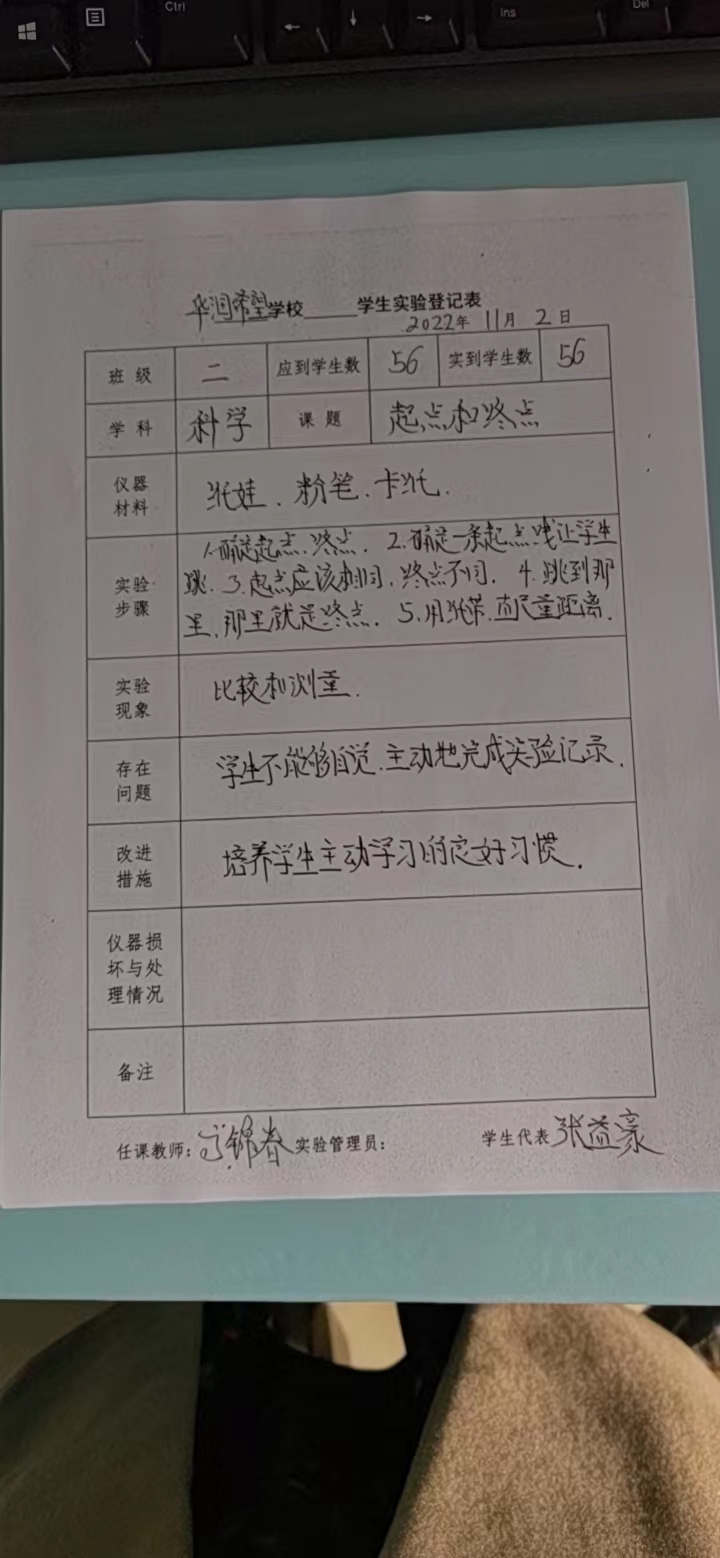 Ctrl
Ins
Del
华润希望学校 学生实验登记表
2022年 11月 2日
班 级 二 应到学生数 56 实到学生数 56
学 科 科学 课 题 起点和终点
仪器
材料
纸娃、粉笔、卡纸.
实验
步骤
1.确定起点、终点. 2.确定一条起点线让学生
跳. 3.起点应该相同,终点不同. 4.跳到那
里,那里就是终点. 5.用纸带、直尺量距离.
实验
现象
比较和测量.
存在
问题
学生不能够自觉、主动地完成实验记录.
改进
措施
培养学生主动学习的良好习惯.
仪器损
坏与处
理情况
备注
任课教师: 锦春 实验管理员: 学生代表 张益豪